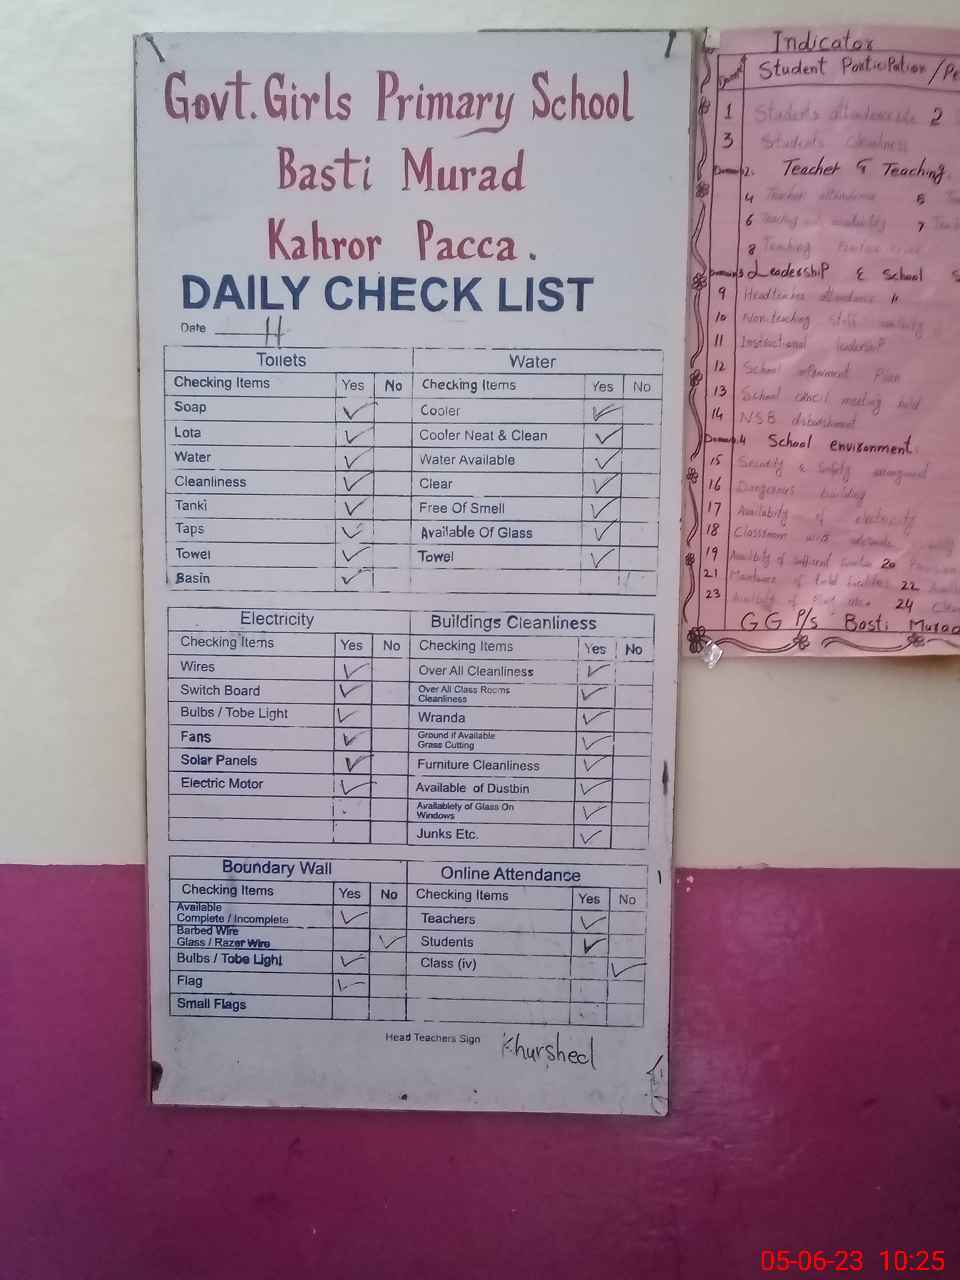 Govt. Girls Primary School
Basti Murad
Kahror Pacca.
DAILY CHECK LIST
Date 11
Toilets
Checking Items Yes No
Soap ✓
Lota ✓
Water ✓
Cleanliness ✓
Tanki ✓
Taps ✓
Towel ✓
Basin ✓
Water
Checking Items Yes No
Cooler ✓
Cooler Neat & Clean ✓
Water Available ✓
Clear ✓
Free Of Smell ✓
Available Of Glass ✓
Towel ✓
Electricity
Checking Items Yes No
Wires ✓
Switch Board ✓
Bulbs / Tobe Light ✓
Fans ✓
Solar Panels ✓
Electric Motor ✓
Buildings Cleanliness
Checking Items Yes No
Over All Cleanliness ✓
Over All Class Rooms
Cleanliness ✓
Wranda ✓
Ground if Available
Grass Cutting ✓
Furniture Cleanliness ✓
Available of Dustbin ✓
Availablety of Glass On
Windows ✓
Junks Etc. ✓
Boundary Wall
Checking Items Yes No
Available
Complete / Incomplete ✓
Barbed Wire
Glass / Razer Wire ✓
Bulbs / Tobe Light ✓
Flag ✓
Small Flags
Online Attendance
Checking Items Yes No
Teachers ✓
Students ✓
Class (iv) ✓
Head Teachers Sign Khurshed
Indicator
Student Participation /
1 Students attendance 2
3 Students Cleanliness
2. Teacher & Teaching.
4 Teacher attendance 5
6 Teaching 7
8 Teaching
3 Leadership & School
9 Headteacher attendance
10 Non-teaching staff
11 Instructional leadership
12 School Plan
13 School council meeting held
14 NSB disbursment
4 School environment.
15 Security & Safety
16 Dangerous building
17 Availability of electricity
18 Classroom with
19 of 20
21 of 22
23 of 24
GG P/s Basti Murad
05-06-23 10:25